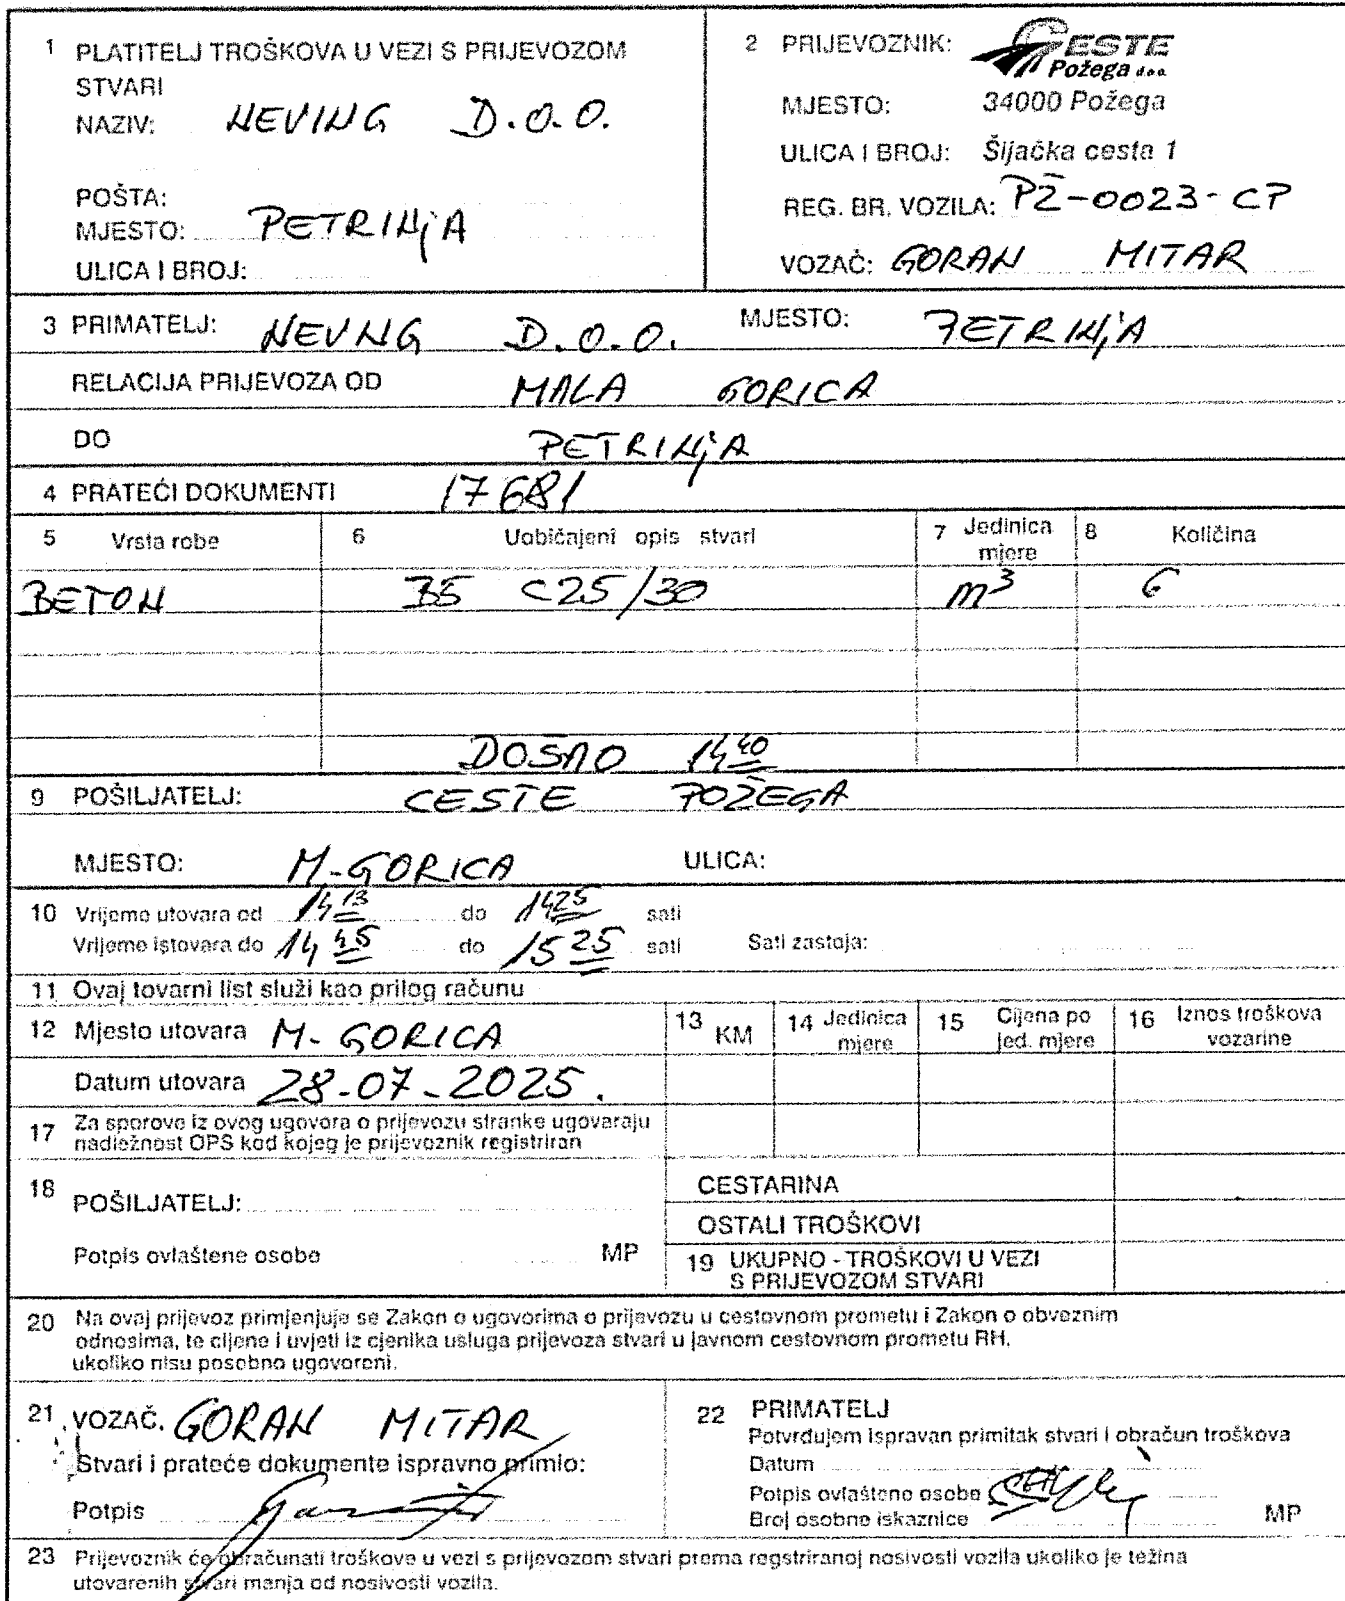 1 PLATITELJ TROŠKOVA U VEZI S PRIJEVOZOM STVARI
NAZIV: NEVING D.O.O.
POŠTA:
MJESTO: PETRINjA
ULICA I BROJ:
2 PRIJEVOZNIK: CESTE Požega d.o.o.
MJESTO: 34000 Požega
ULICA I BROJ: Šijačka cesta 1
REG. BR. VOZILA: PŽ-0023-CP
VOZAČ: GORAN MITAR
3 PRIMATELJ: NEVNG D.O.O. MJESTO: PETRINjA
RELACIJA PRIJEVOZA OD MALA GORICA
DO PETRINjA
4 PRATEĆI DOKUMENTI 17681
5 Vrsta robe 6 Uobičajeni opis stvari 7 Jedinica mjere 8 Količina
BETON B5 C25/30 m³ 6
DOŠAO 14 40
9 POŠILJATELJ: CESTE POŽEGA
MJESTO: M-GORICA ULICA:
10 Vrijeme utovara od 14 13 do 14 25 sati
Vrijeme istovara do 14 45 do 15 25 sati Sati zastoja:
11 Ovaj tovarni list služi kao prilog računu
12 Mjesto utovara M. GORICA 13 KM 14 Jedinica mjere 15 Cijena po jed. mjere 16 Iznos troškova vozarine
Datum utovara 28.07.2025.
17 Za sporove iz ovog ugovora o prijevozu stranke ugovaraju
nadležnost OPS kod kojeg je prijevoznik registriran
18 POŠILJATELJ:
Potpis ovlaštene osobe MP
CESTARINA
OSTALI TROŠKOVI
19 UKUPNO - TROŠKOVI U VEZI
S PRIJEVOZOM STVARI
20 Na ovaj prijevoz primjenjuje se Zakon o ugovorima o prijevozu u cestovnom prometu i Zakon o obveznim
odnosima, te cijene i uvjeti iz cjenika usluga prijevoza stvari u javnom cestovnom prometu RH,
ukoliko nisu posebno ugovoreni.
21 VOZAČ. GORAN MITAR
Stvari i prateće dokumente ispravno primio:
Potpis
22 PRIMATELJ
Potvrđujem ispravan primitak stvari i obračun troškova
Datum
Potpis ovlaštene osobe
Broj osobne iskaznice MP
23 Prijevoznik će obračunati troškove u vezi s prijevozom stvari prema regstriranoj nosivosti vozila ukoliko je težina
utovarenih stvari manja od nosivosti vozila.